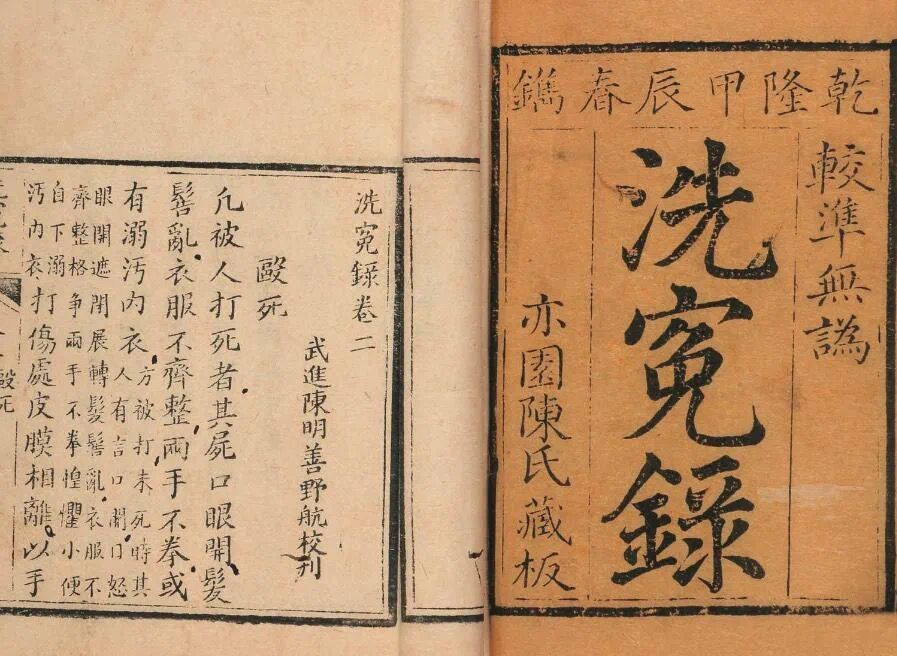 乾隆甲辰春鐫
較準無譌
洗寃錄
亦園陳氏藏板
洗寃錄卷二
武進陳明善野航校刊
毆死
凡被人打死者其屍口眼開髮
髻亂衣服不齊整兩手不拳或
有溺汚內衣方被打未死時其人有言口開口怒
眼開遮閉展轉髮髻亂衣服不齊整格爭兩手不拳惶懼小便
自下溺汚內衣打傷處皮膜相離以手
毆死